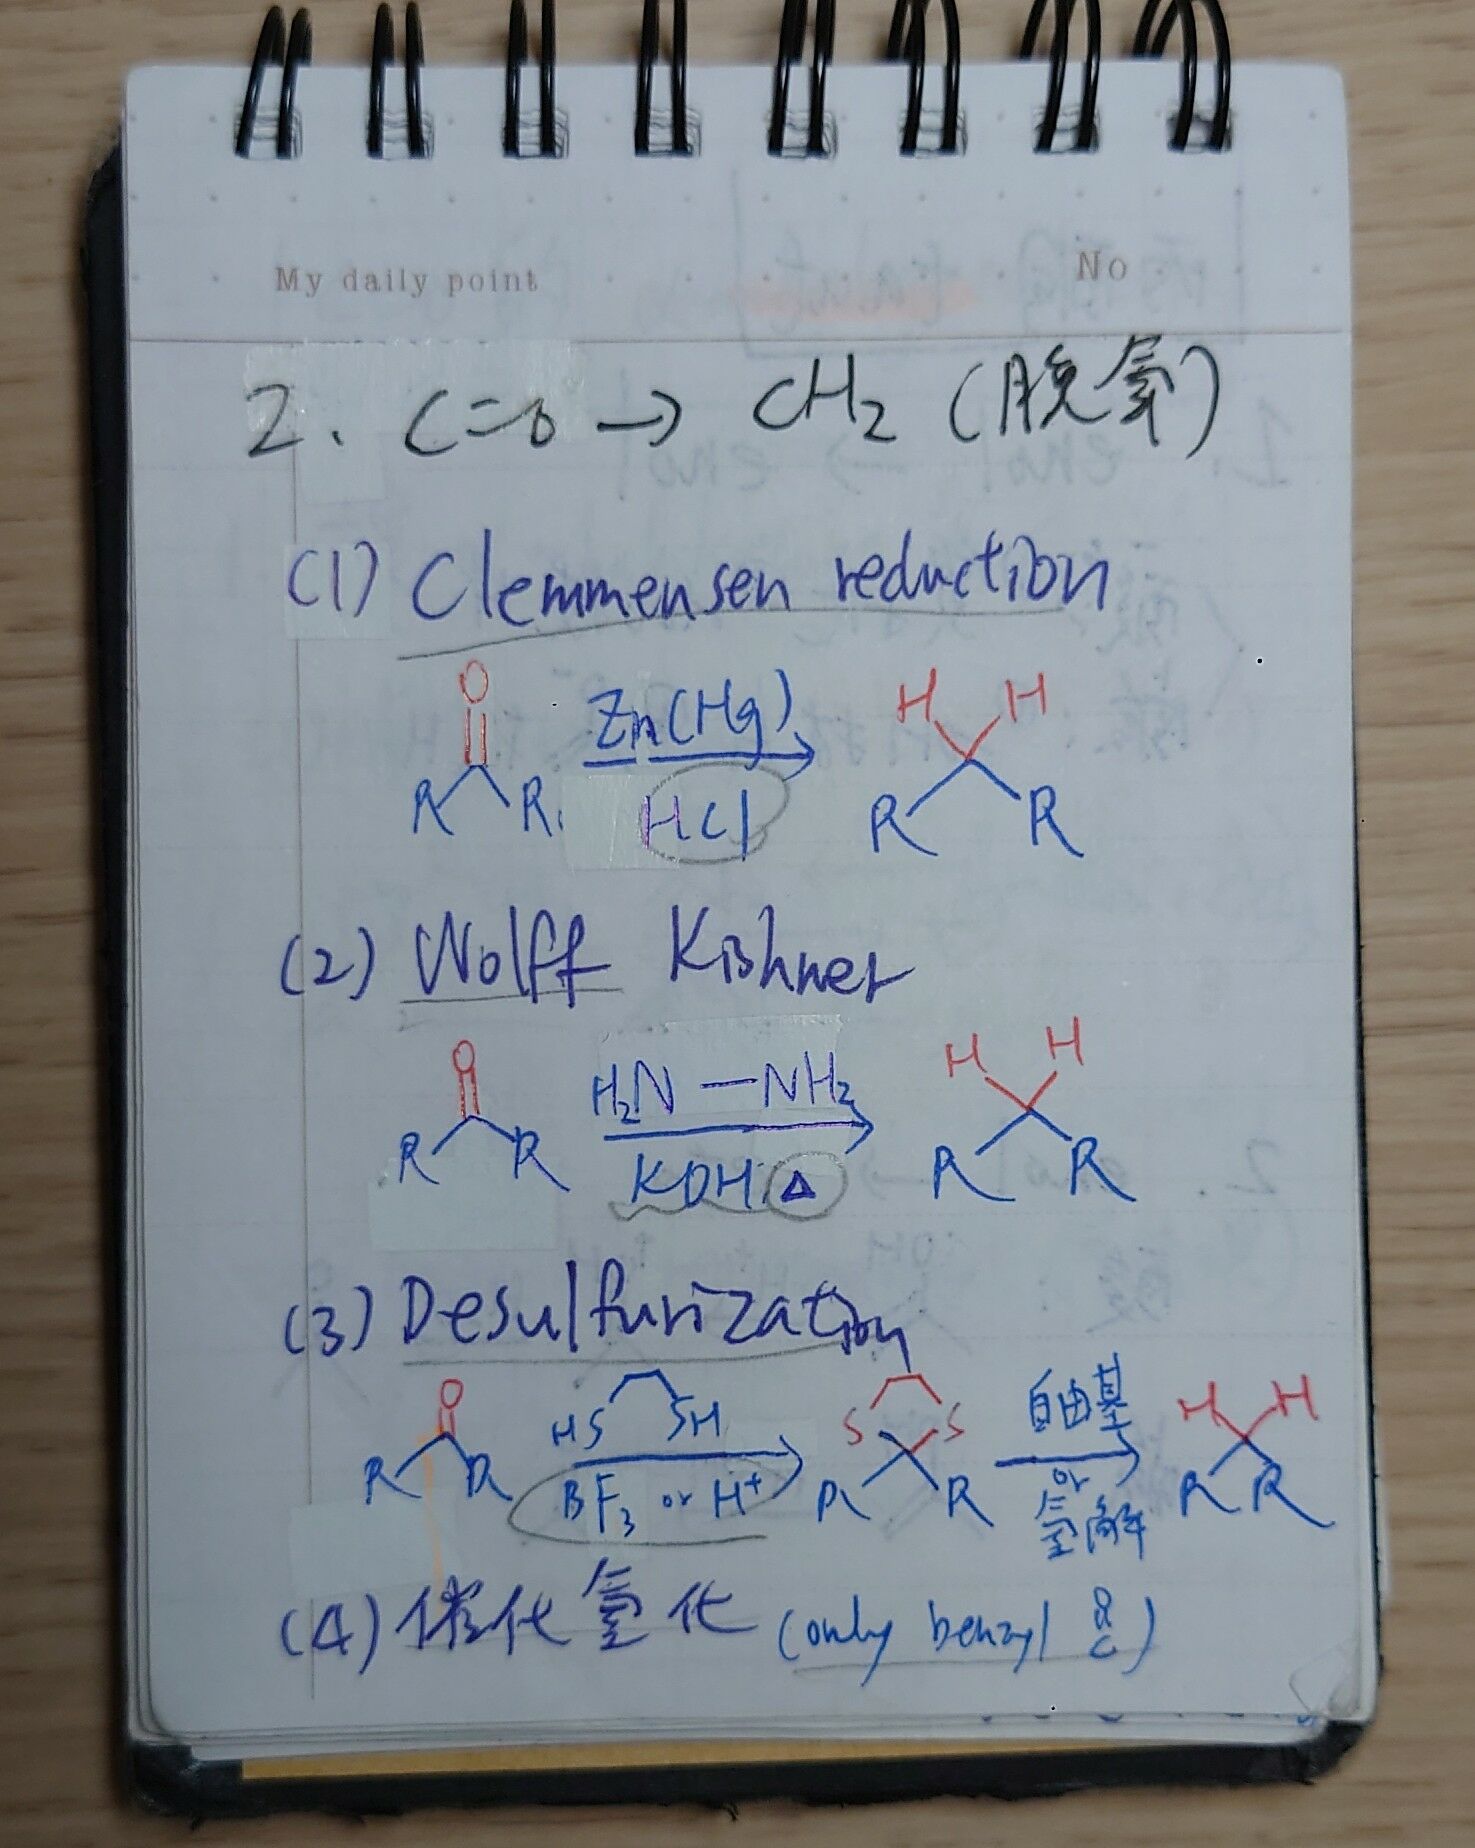 My daily point No
2. C=O → CH₂ (脱氧)
(1) Clemmensen reduction
O Zn(Hg) H H
R R HCl R R
(2) Wolff Kishner
O H₂N—NH₂ H H
R R KOH Δ R R
(3) Desulfurization
O HS SH S S 自由基 H H
R R BF₃ or H⁺ R R or 氢解 R R
(4) 催化氢化 (only benzyl C=O)